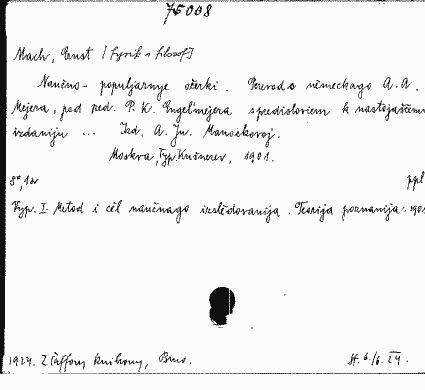 75008
Mach, Ernst [fysik a filosof]
Naučno-populjarnye očerki. Perevod s německago A. A.
Mejera, pod red. P. K. Engel'mejera s predisloviem k nastojaščemu
izdaniju ... Izd. A. Ju. Manockovoj.
Moskva, Typ. Kušnerev, 1901.
8°, 1 sv
ppl
Vyp. I. Metod i cěl naučnago izslědovanija. Teorija poznanija. 1901
1924. Z Taffony knihovny, Brno.
St. 6./6. 24.